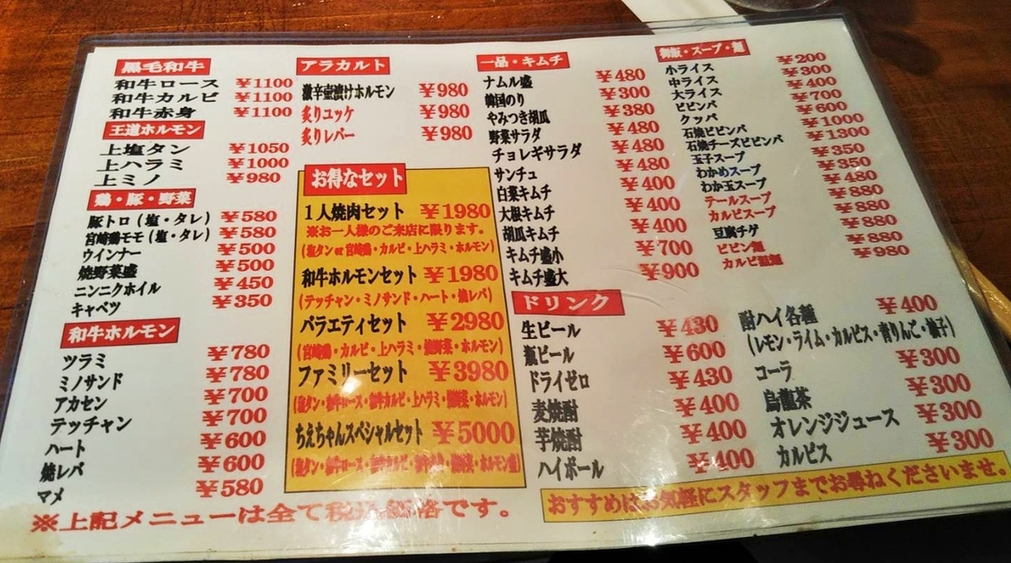 黒毛和牛
和牛ロース ¥1100
和牛カルビ ¥1100
和牛赤身 ¥1100
王道ホルモン
上塩タン ¥1050
上ハラミ ¥1000
上ミノ ¥980
鶏・豚・野菜
豚トロ(塩・タレ) ¥580
宮崎鶏モモ(塩・タレ) ¥580
ウインナー ¥500
焼野菜盛 ¥500
ニンニクホイル ¥450
キャベツ ¥350
和牛ホルモン
ツラミ ¥780
ミノサンド ¥780
アカセン ¥700
テッチャン ¥700
ハート ¥600
焼レバ ¥600
マメ ¥580
アラカルト
激辛壺漬けホルモン ¥980
炙りユッケ ¥980
炙りレバー ¥980
お得なセット
1人焼肉セット ¥1980
※お一人様のご来店に限ります。
(塩タンor宮崎鶏・カルビ・上ハラミ・ホルモン)
和牛ホルモンセット ¥1980
(テッチャン・ミノサンド・ハート・焼レバ)
バラエティセット ¥2980
(宮崎鶏・カルビ・上ハラミ・焼野菜・ホルモン)
ファミリーセット ¥3980
(塩タン・和牛ロース・和牛カルビ・上ハラミ・焼野菜・ホルモン)
ちえちゃんスペシャルセット ¥5000
一品・キムチ
ナムル盛 ¥480
韓国のり ¥300
やみつき胡瓜 ¥380
野菜サラダ ¥480
チョレギサラダ ¥480
サンチュ ¥480
白菜キムチ ¥400
大根キムチ ¥400
胡瓜キムチ ¥400
キムチ盛小 ¥700
キムチ盛大 ¥900
御飯・スープ・麺
小ライス ¥200
中ライス ¥300
大ライス ¥400
ビビンバ ¥700
クッパ ¥600
石焼ビビンバ ¥1000
石焼チーズビビンバ ¥1300
玉子スープ ¥350
わかめスープ ¥350
わか玉スープ ¥480
テールスープ ¥880
カルビスープ ¥880
豆腐チゲ ¥880
ビビン麺 ¥880
カルビ温麺 ¥980
ドリンク
生ビール ¥430
瓶ビール ¥600
ドライゼロ ¥430
麦焼酎 ¥400
芋焼酎 ¥400
ハイボール ¥400
酎ハイ各種 ¥400
(レモン・ライム・カルピス・青りんご・柚子)
コーラ ¥300
烏龍茶 ¥300
オレンジジュース ¥300
カルピス ¥300
※上記メニューは全て税込価格です。
おすすめはお気軽にスタッフまでお尋ねくださいませ。